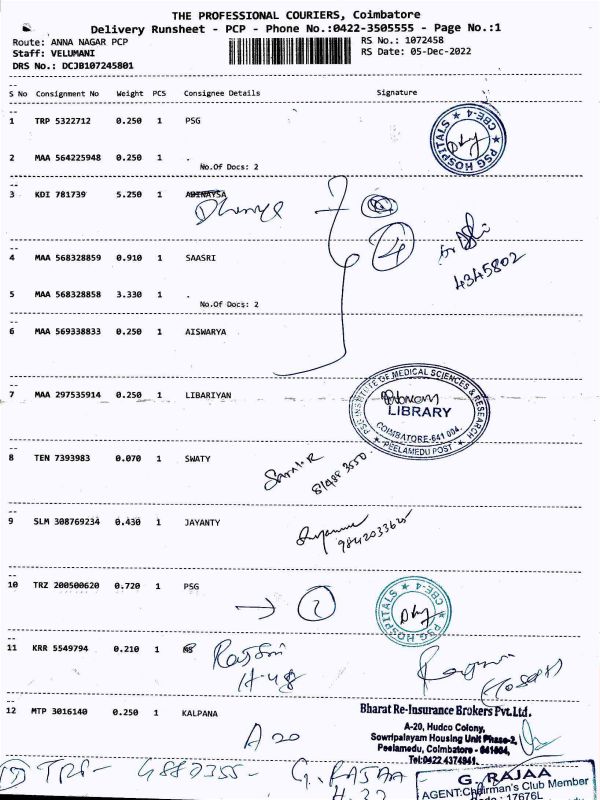 THE PROFESSIONAL COURIERS, Coimbatore
Delivery Runsheet - PCP - Phone No.:0422-3505555 - Page No.:1
Route: ANNA NAGAR PCP
RS No.: 1072458
Staff: VELUMANI
RS Date: 05-Dec-2022
DRS No.: DCJB107245801
S No Consignment No Weight PCS Consignee Details Signature
1 TRP 5322712 0.250 1 PSG
PSG HOSPITALS ★ CBE-4 ★
2 MAA 564225948 0.250 1 .
No.Of Docs: 2
3 KDI 781739 5.250 1 ABINAYSA
4
4345802
4 MAA 568328859 0.910 1 SAASRI
5 MAA 568328858 3.330 1 .
No.Of Docs: 2
6 MAA 569338833 0.250 1 AISWARYA
7 MAA 297535914 0.250 1 LIBARIYAN
PSG INSTITUTE OF MEDICAL SCIENCES & RESEARCH
LIBRARY
COIMBATORE-641 004.
★ PEELAMEDU POST ★
8 TEN 7393983 0.070 1 SWATY
9 SLM 308769234 0.430 1 JAYANTY
10 TRZ 200500620 0.720 1 PSG
→ 2
PSG HOSPITALS ★ CBE-4 ★
11 KRR 5549794 0.210 1
H-48
12 MTP 3016140 0.250 1 KALPANA
A 20
Bharat Re-Insurance Brokers Pvt.Ltd.
A-20, Hudco Colony,
Sowripalayam Housing Unit Phase-2,
Peelamedu, Coimbatore - 641004,
Tel:0422 4374941.
G. RAJAA
G. RAJAA
AGENT:Chairman's Club Member
17676L